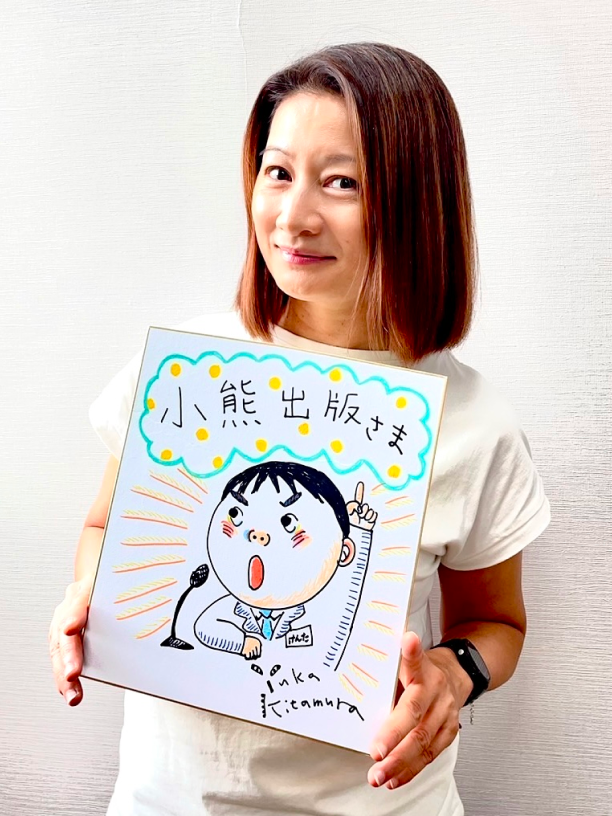 小熊出版さま
けんた
Yuka
Kitamura